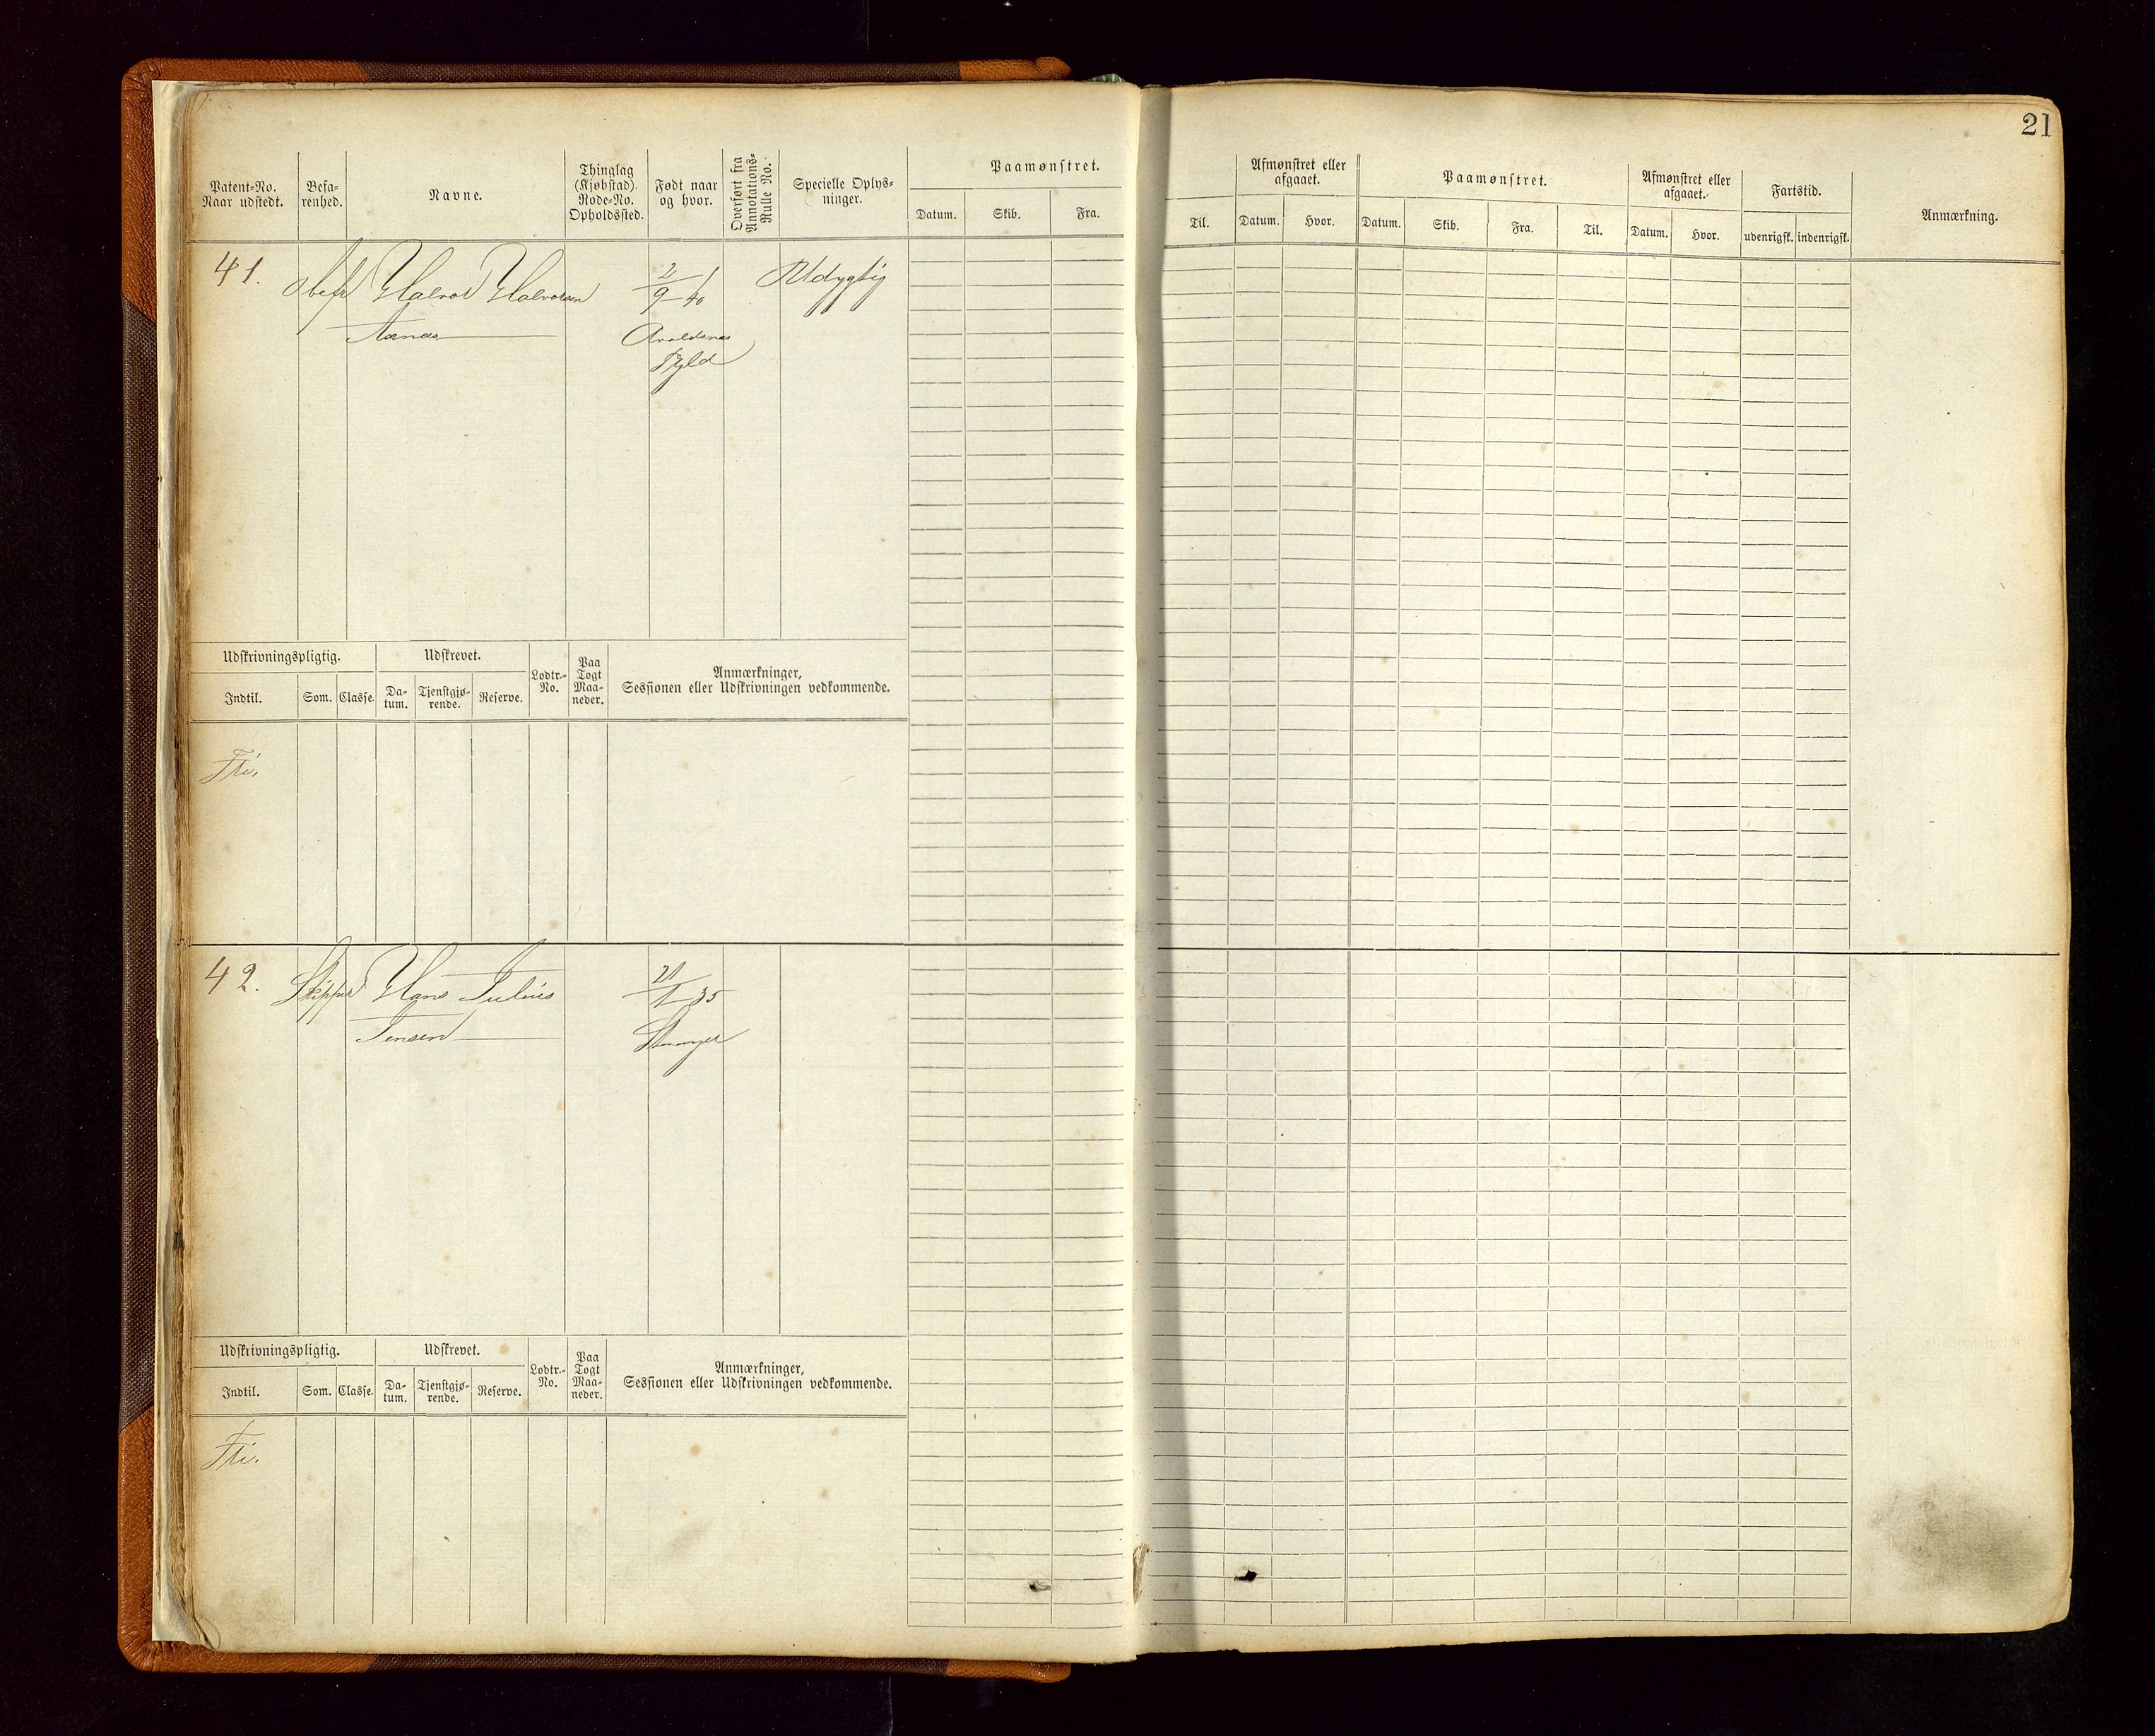 21
Patent-No. Naar udstedt.
Befa-renhed.
Navne.
Thinglag (Kjøbstad). Rode-No. Opholdssted.
Født naar og hvor.
Overført fra Annotations-Rulle No.
Specielle Oplys-ninger.
Paamønstret.
Datum. Skib. Fra.
Til.
Afmønstret eller afgaaet.
Datum. Hvor.
Paamønstret.
Datum. Skib. Fra. Til.
Afmønstret eller afgaaet.
Datum. Hvor.
Fartstid.
udenrigsk. indenrigsk.
Anmærkning.
41. Halvor Halvorsen 2/9 40 Udygtig
Avaldsnes
Udskrivningspligtig. Udskrevet. Lodtr.-No. Paa Togt Maa-neder. Anmærkninger, Sessionen eller Udskrivningen vedkommende.
Indtil. Som. Classe. Da-tum. Tjenstgjø-rende. Reserve.
Fri.
42. Skipper Hans Julius 21/1 35
Jensen Stavanger
Udskrivningspligtig. Udskrevet. Lodtr.-No. Paa Togt Maa-neder. Anmærkninger, Sessionen eller Udskrivningen vedkommende.
Indtil. Som. Classe. Da-tum. Tjenstgjø-rende. Reserve.
Fri.